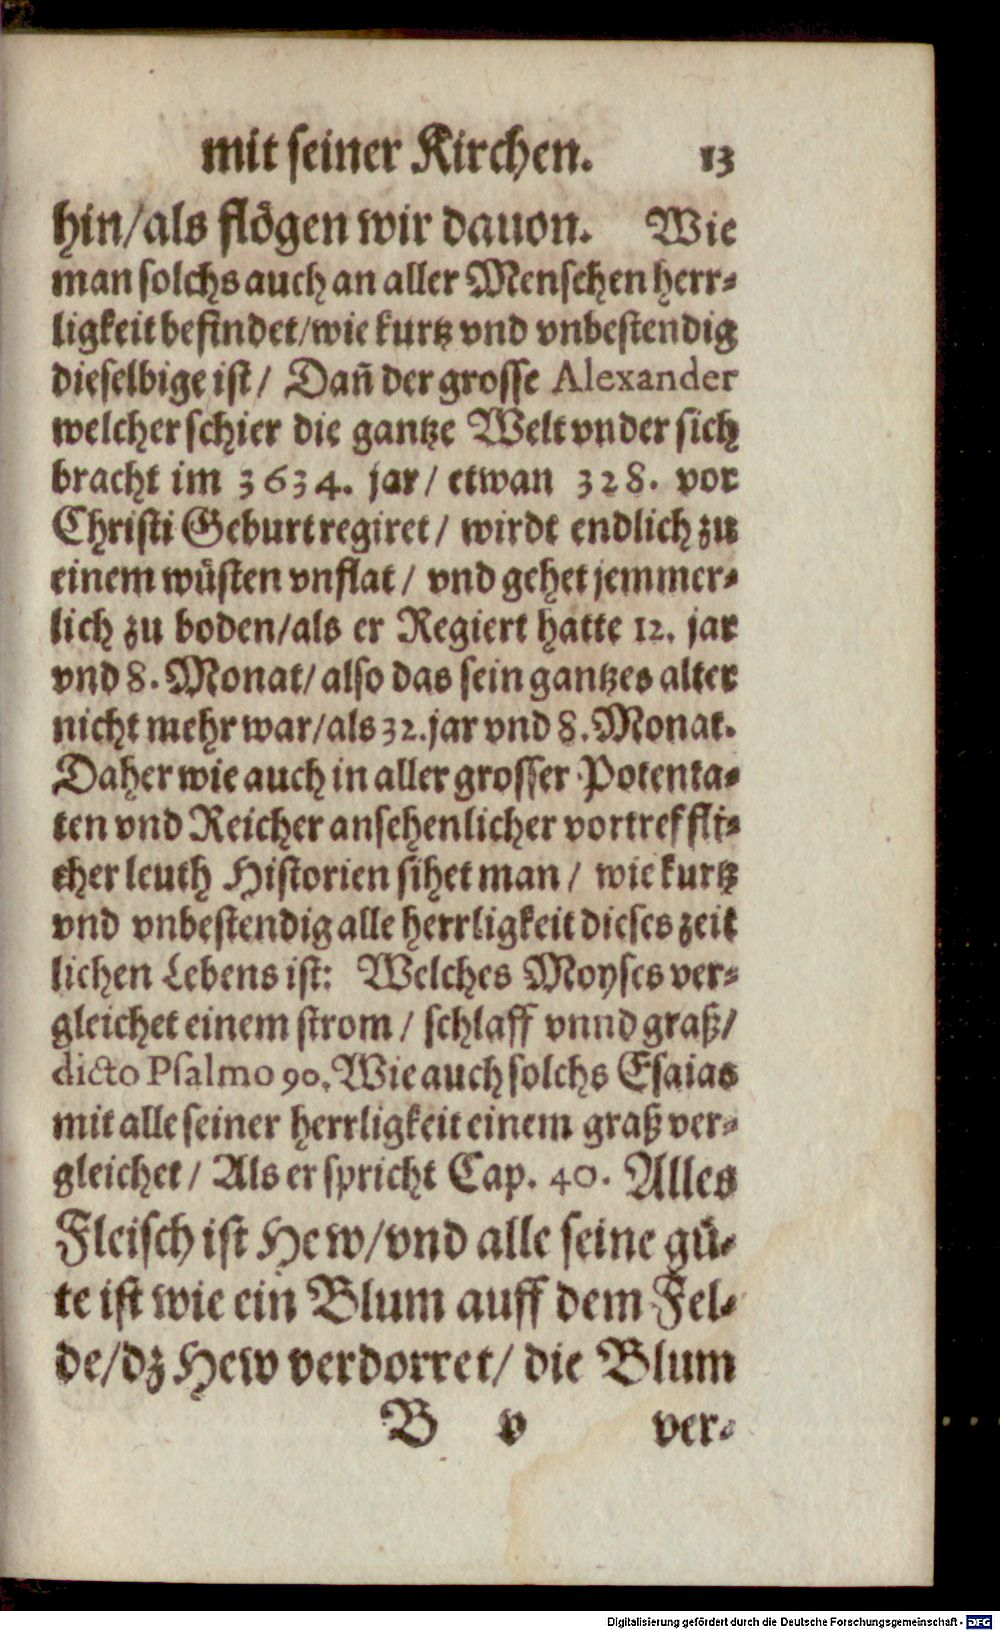 mit seiner Kirchen. 13
hin/als flögen wir dauon. Wie
man solchs auch an aller Menschen herr-
ligkeit befindet/wie kurtz vnd vnbestendig
dieselbige ist/ Dañ der grosse Alexander
welcher schier die gantze Welt vnder sich
bracht im 3634. jar/ etwan 328. vor
Christi Geburt regiret/ wirdt endlich zu
einem wüsten vnflat/ vnd gehet jemmer-
lich zu boden/als er Regiert hatte 12. jar
vnd 8. Monat/ also das sein gantzes alter
nicht mehr war/als 32. jar vnd 8. Monat.
Daher wie auch in aller grosser Potenta-
ten vnd Reicher ansehenlicher vortreffli-
cher leuth Historien sihet man/ wie kurtz
vnd vnbestendig alle herrligkeit dieses zeit
lichen Lebens ist: Welches Moyses ver-
gleichet einem strom/ schlaff vnnd graß/
dicto Psalmo 90. Wie auch solchs Esaias
mit alle seiner herrligkeit einem graß ver-
gleichet/ Als er spricht Cap. 40. Alles
Fleisch ist Hew/vnd alle seine gü-
te ist wie ein Blum auff dem Fel-
de/dz Hew verdorret/ die Blum
B v ver-
Digitalisierung gefördert durch die Deutsche Forschungsgemeinschaft - DFG